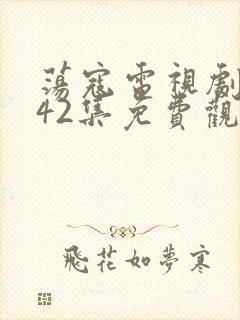 蕩寇電視劇
42集免費觀
飛花如夢寒